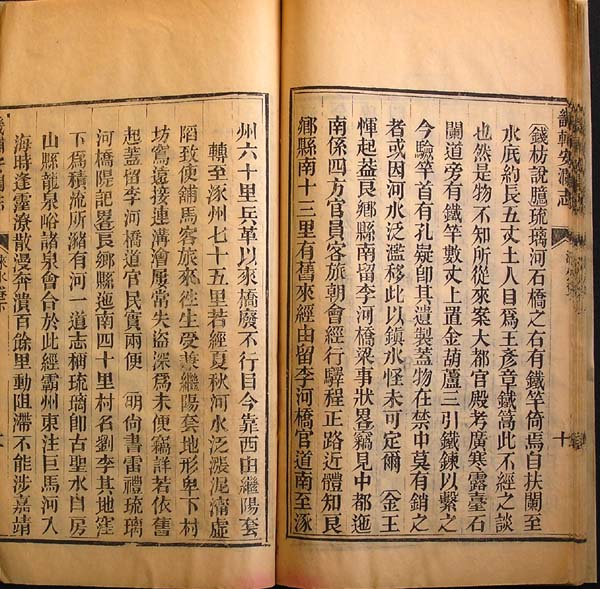 錢枋說臆琉璃河石橋之右有鐵竿倚焉自扶闌至
水底約長五丈土人目為王彥章鐵篙此不經之談
也然是物不知所從來案大都宮殿考廣寒露臺石
闌道旁有鐵竿數丈上置金葫蘆三引鐵鍊以繫之
今驗竿首有孔疑卽其遺製蓋物在禁中莫有銷之
者或因河水泛濫移此以鎮水怪未可定爾　金王
惲起蓋良鄉縣南留李河橋梁事狀畧竊見中都迤
南係四方官員客旅朝會經行驛程正路近體知良
鄉縣南十三里有舊來經由留李河橋官道南至涿
畿輔安瀾志
十
州六十里兵革以來橋廢不行目今靠西由繼陽套
轉至涿州七十五里若經夏秋河水泛漲泥濘虛
陷致使舖馬客旅來往生受兼繼陽套地形卑下村
坊窵遠接連溝澮屢常失盜深為未便竊詳若依舊
起蓋留李河橋道官民實兩便　明尚書雷禮琉璃
河橋隄記畧良鄉縣迤南四十里村名劉李其地窪
下為積流所瀦有河一道志稱琉璃卽古聖水自房
山縣龍泉峪諸泉會合於此經霸州東注巨馬河入
海時逢霪潦散漫奔潰百餘里動阻滯不能涉嘉靖